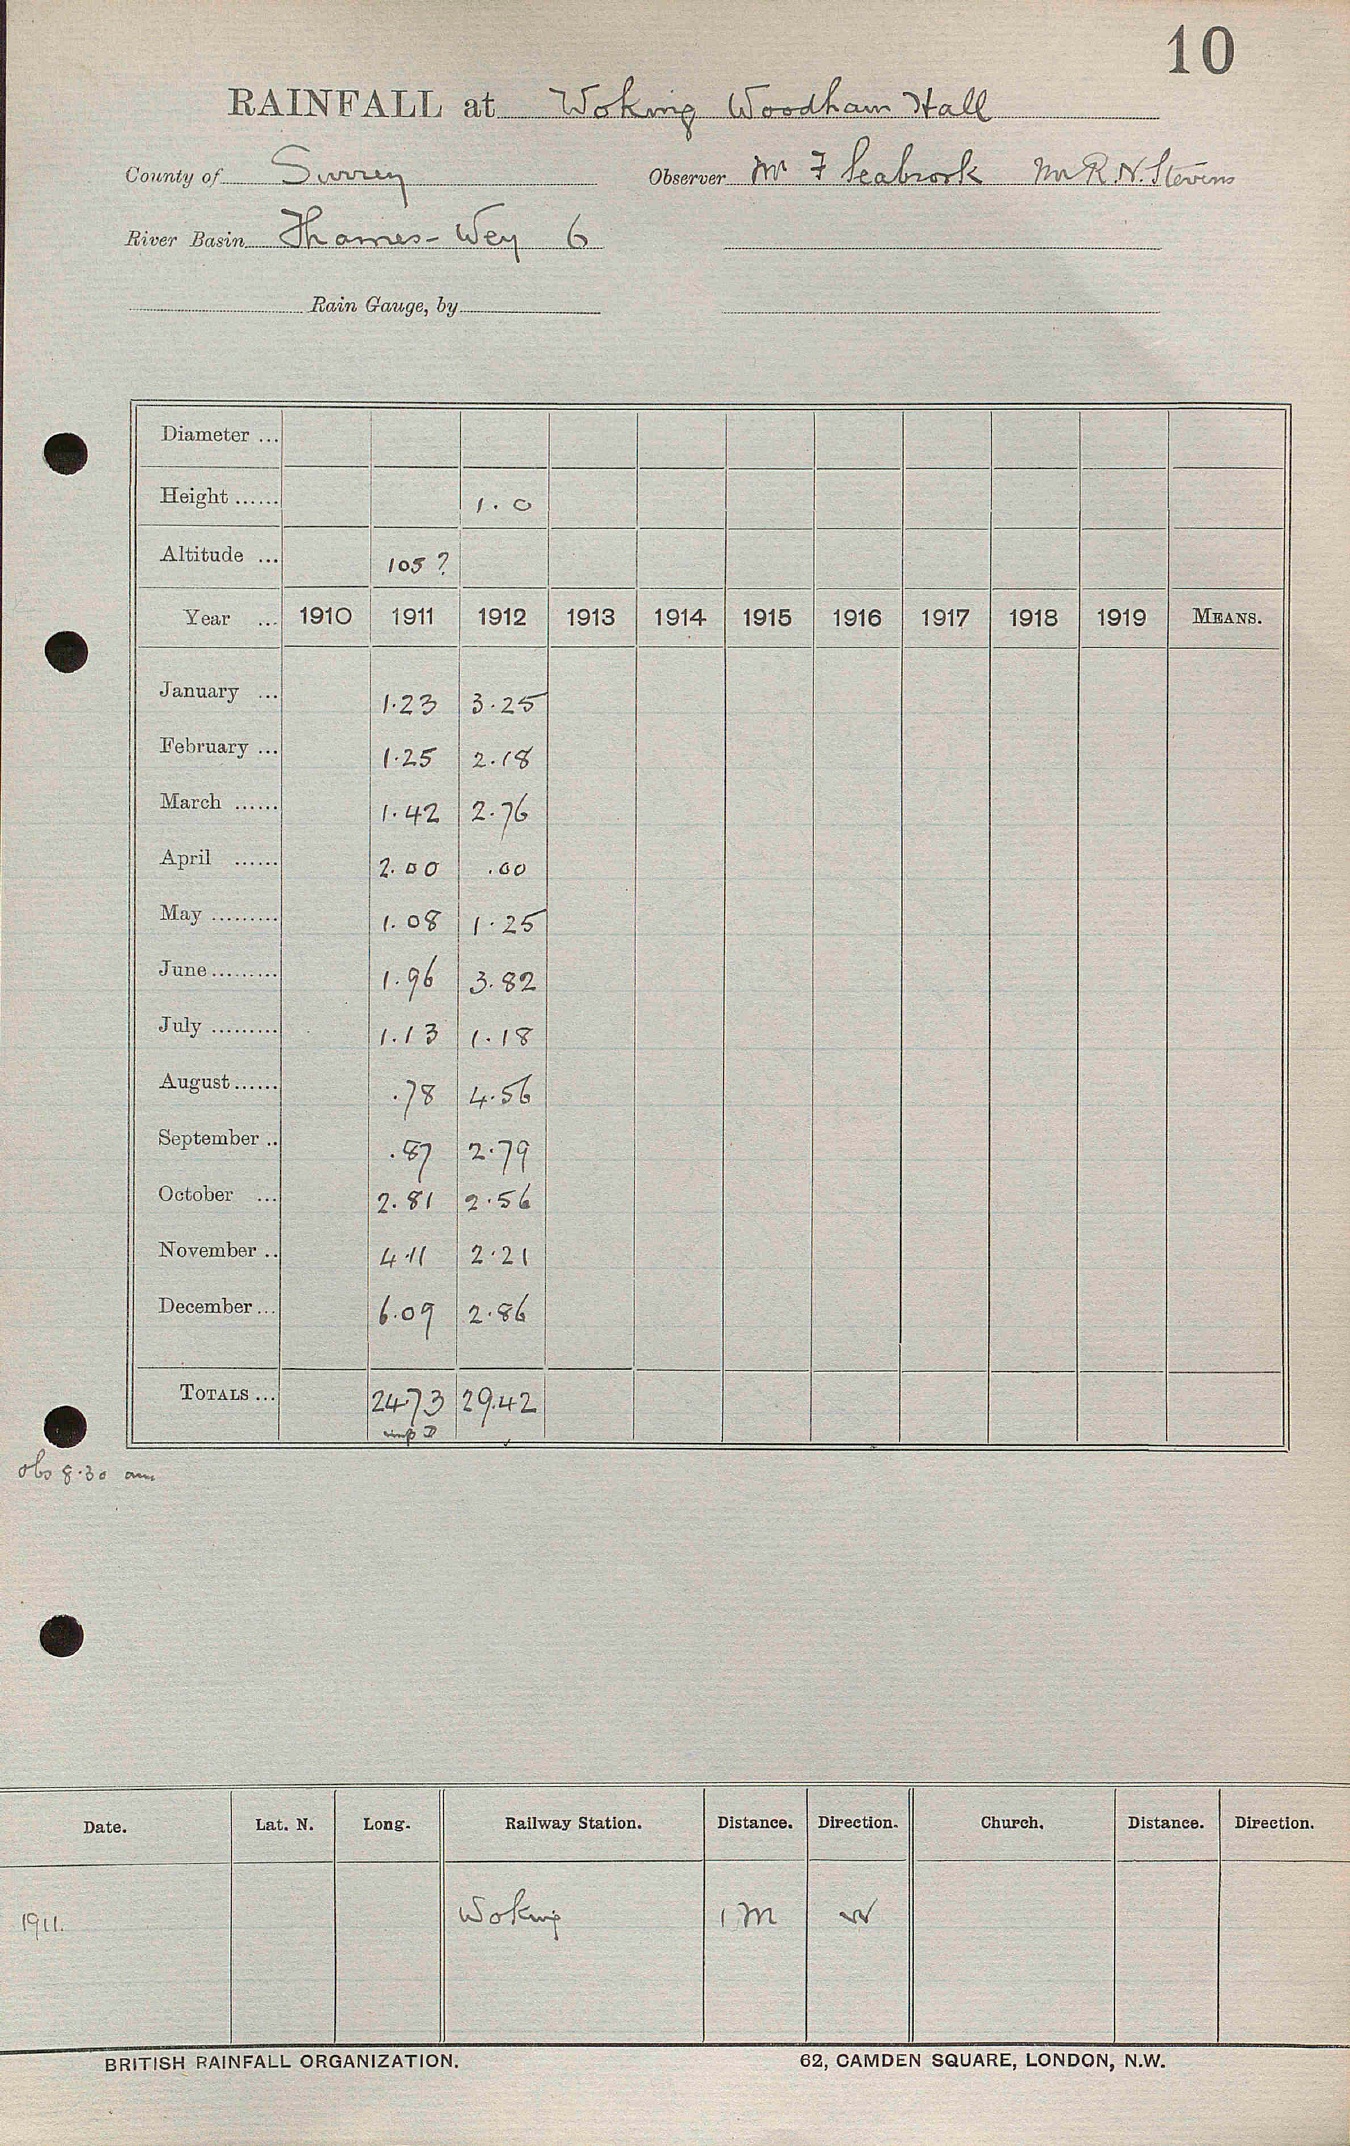 10
RAINFALL at Woking Woodham Hall
County of Surrey Observer Mr F Seabrook Mr R. N. Stevens
River Basin Thames - Wey 6
Rain Gauge, by
Diameter ...
Height ...... 1.0
Altitude ... 105?
Year ... 1910 1911 1912 1913 1914 1915 1916 1917 1918 1919 MEANS.
January ... 1.23 3.25
February ... 1.25 2.18
March ...... 1.42 2.76
April ...... 2.00 .00
May ......... 1.08 1.25
June ......... 1.96 3.82
July ......... 1.13 1.18
August ...... .78 4.56
September .. .87 2.79
October ... 2.81 2.56
November .. 4.11 2.21
December ... 6.09 2.86
TOTALS ... 24.73 29.42
obs 8.30 am
Date. Lat. N. Long. Railway Station. Distance. Direction. Church. Distance. Direction.
1911. Woking 1 M W
BRITISH RAINFALL ORGANIZATION. 62, CAMDEN SQUARE, LONDON, N.W.